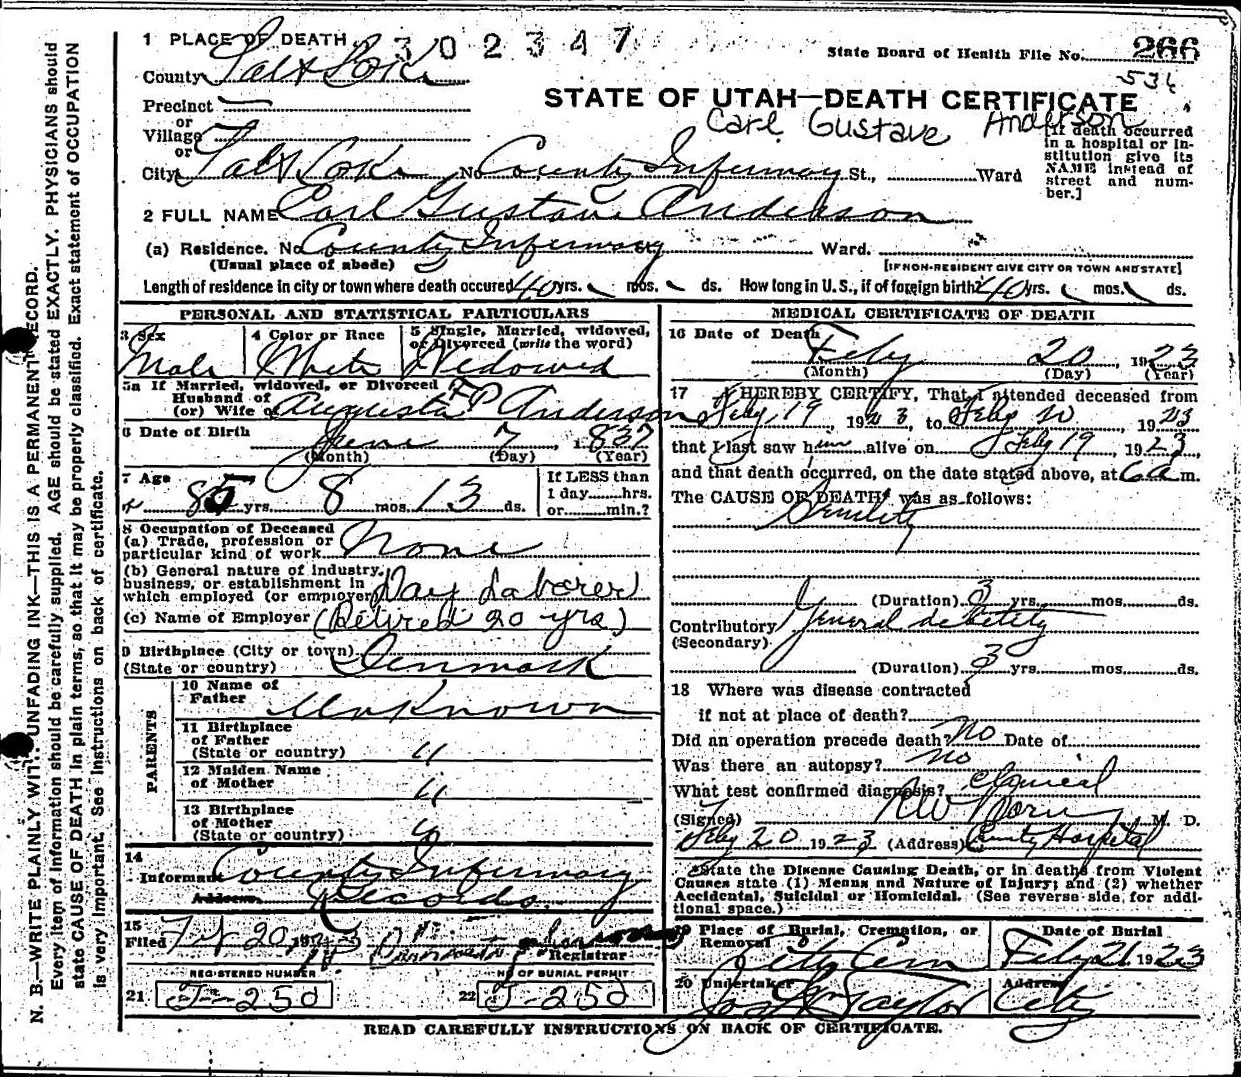 1 PLACE OF DEATH 302347
State Board of Health File No. 266
County Salt Lake
536
Precinct
STATE OF UTAH—DEATH CERTIFICATE
or
Village
Carl Gustave Anderson
or
City Salt Lake No County Infirmary St., Ward
[If death occurred
in a hospital or in-
stitution give its
NAME instead of
street and num-
ber.]
2 FULL NAME Carl Gustave Anderson
(a) Residence. No County Infirmary Ward.
(Usual place of abode)
[IF NON-RESIDENT GIVE CITY OR TOWN AND STATE]
Length of residence in city or town where death occured 40 yrs. mos. ds. How long in U. S., if of foreign birth? 40 yrs. mos. ds.
PERSONAL AND STATISTICAL PARTICULARS
3 Sex
Male
4 Color or Race
White
5 Single, Married, widowed,
or Divorced (write the word)
Widowed
5a If Married, widowed, or Divorced
Husband of
(or) Wife of Augusta P Anderson
6 Date of Birth June 7, 1837
(Month) (Day) (Year)
7 Age
85 yrs. 8 mos. 13 ds.
If LESS than
1 day hrs.
or min.?
8 Occupation of Deceased
(a) Trade, profession or
particular kind of work None
(b) General nature of industry,
business, or establishment in
which employed (or employer) Day Laborer
(c) Name of Employer (Retired 20 yrs)
9 Birthplace (City or town)
(State or country) Denmark
PARENTS
10 Name of
Father Unknown
11 Birthplace
of Father
(State or country) "
12 Maiden Name
of Mother "
13 Birthplace
of Mother
(State or country) "
14
Informant County Infirmary
Address Records
15
Filed Feb 20 1923
Registrar
REGISTERED NUMBER
21 J-250
NO OF BURIAL PERMIT
22 J-250
MEDICAL CERTIFICATE OF DEATH
16 Date of Death
Feby 20, 1923
(Month) (Day) (Year)
17 I HEREBY CERTIFY, That I attended deceased from
Feby 19, 1923, to Feby 20, 1923
that I last saw him alive on Feby 19, 1923
and that death occurred, on the date stated above, at 6 a m.
The CAUSE OF DEATH was as follows:
Senility
(Duration) 3 yrs. mos. ds.
Contributory General debility
(Secondary)
(Duration) 3 yrs. mos. ds.
18 Where was disease contracted
if not at place of death?
Did an operation precede death? No Date of
Was there an autopsy? no
What test confirmed diagnosis? Clinical
(Signed) M. D.
Feby 20 1923 (Address) County Hospital
State the Disease Causing Death, or in deaths from Violent
Causes state (1) Means and Nature of Injury; and (2) whether
Accidental, Suicidal or Homicidal. (See reverse side for addi-
tional space.)
19 Place of Burial, Cremation, or
Removal City Cem
Date of Burial
Feby 21 1923
20 Undertaker
Jos Wm Taylor
Address
City
READ CAREFULLY INSTRUCTIONS ON BACK OF CERTIFICATE.
N. B.—WRITE PLAINLY WITH UNFADING INK—THIS IS A PERMANENT RECORD.
Every item of information should be carefully supplied. AGE should be stated EXACTLY. PHYSICIANS should
state CAUSE OF DEATH in plain terms, so that it may be properly classified. Exact statement of OCCUPATION
is very important. See Instructions on back of certificate.